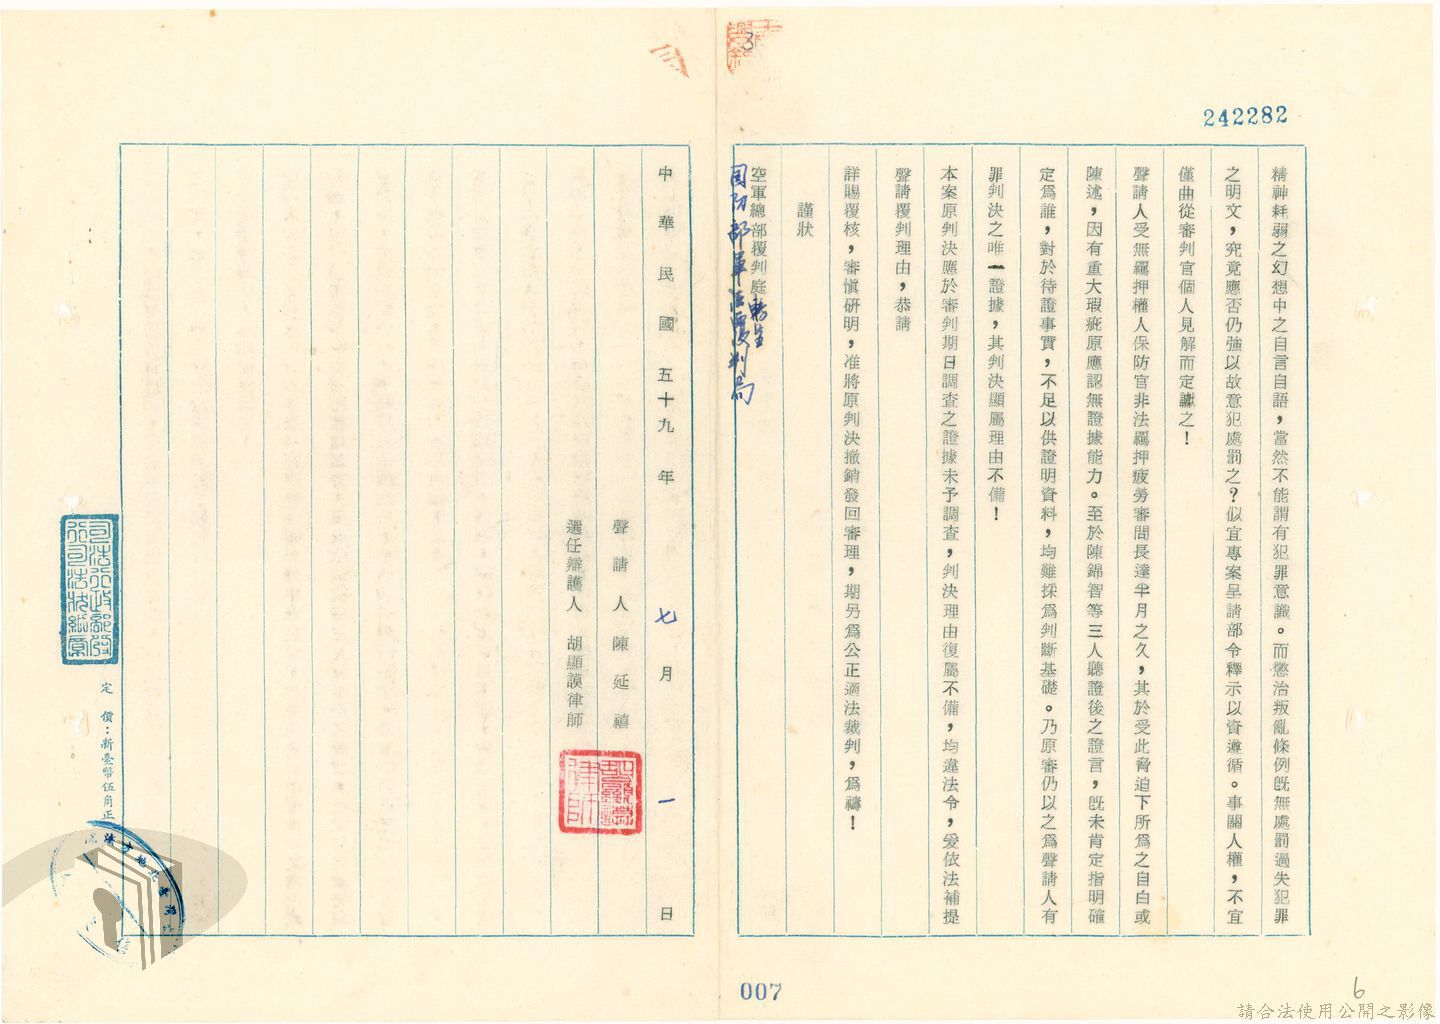 242282
精神耗弱之幻想中之自言自語，當然不能謂有犯罪意識。而懲治叛亂條例既無處罰過失犯罪
之明文，究竟應否仍強以故意犯處罰之？似宜專案呈請部令釋示以資遵循。事關人權，不宜
僅曲從審判官個人見解而定讞之！
聲請人受無羈押權人保防官非法羈押疲勞審問長達半月之久，其於受此脅迫下所為之自白或
陳述，因有重大瑕疵原應認無證據能力。至於陳錦智等三人聽證後之證言，既未肯定指明確
定為誰，對於待證事實，不足以供證明資料，均難採為判斷基礎。乃原審仍以之為聲請人有
罪判決之唯一證據，其判決顯屬理由不備！
本案原判決應於審判期日調查之證據未予調查，判決理由復屬不備，均違法令，爰依法補提
聲請覆判理由，恭請
詳賜覆核，審慎研明，准將原判決撤銷發回審理，期另為公正適法裁判，為禱！
謹狀
空軍總部覆判庭轉呈
国防部軍法覆判局
3
中華民國五十九年七月一日
聲請人陳延禧
選任辯護人 胡顯謨律師
律師
司法行政部發
行司法狀紙票
定價：新臺幣伍角正
007
6
請合法使用公開之影像